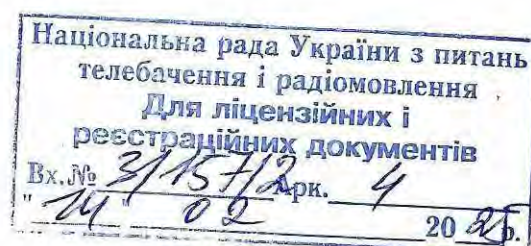 Національна рада України з питань
телебачення і радіомовлення
Для ліцензійних і
реєстраційних документів
Вх.№ 3/157/2 Арк. 4
"14" 02 2025р.